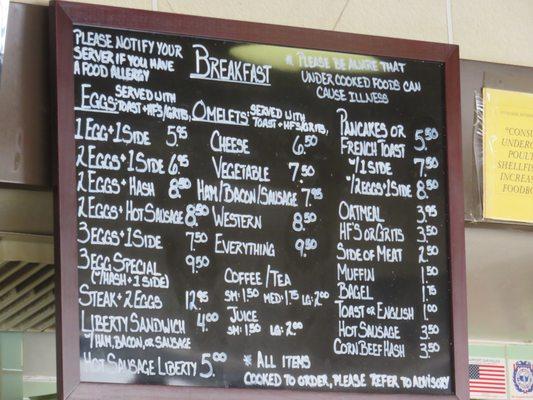 PLEASE NOTIFY YOUR
SERVER IF YOU HAVE
A FOOD ALLERGY
BREAKFAST
* PLEASE BE AWARE THAT
UNDER COOKED FOODS CAN
CAUSE ILLNESS
EGGS: SERVED WITH
TOAST + HFS/GRITS,
1 EGG + 1 SIDE 5.95
2 EGGS + 1 SIDE 6.95
2 EGGS + HASH 8.50
2 EGGS + HOT SAUSAGE 8.50
3 EGGS + 1 SIDE 7.50
3 EGG SPECIAL 9.50
(W/HASH + 1 SIDE)
STEAK + 2 EGGS 12.95
LIBERTY SANDWICH 4.00
W/ HAM, BACON, OR SAUSAGE
HOT SAUSAGE LIBERTY 5.00
OMELETS: SERVED WITH
TOAST + HFS/GRITS,
CHEESE 6.50
VEGETABLE 7.50
HAM/BACON/SAUSAGE 7.95
WESTERN 8.50
EVERYTHING 9.50
COFFEE/TEA
SM: 1.50 MED: 1.75 LG: 2.00
JUICE
SM: 1.50 LG: 2.00
* ALL ITEMS
COOKED TO ORDER, PLEASE REFER TO ADVISORY
PANCAKES OR
FRENCH TOAST 5.50
W/1 SIDE 7.50
W/2 EGGS + 1 SIDE 8.50
OATMEAL 3.95
HFS OR GRITS 3.50
SIDE OF MEAT 2.50
MUFFIN 1.50
BAGEL 1.75
TOAST OR ENGLISH 1.00
HOT SAUSAGE 3.50
CORN BEEF HASH 3.50
"CONSU
UNDERC
POULT
SHELLFIS
INCREAS
FOODBO